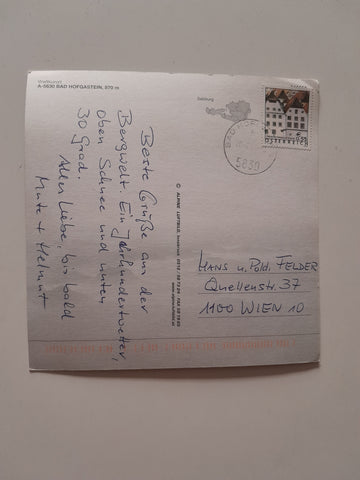 Weltkurort
A-5630 BAD HOFGASTEIN, 870 m
Salzburg
5630
ÖSTERREICH
Beste Grüße aus der
Bergwelt. Ein Jahrhundertwetter,
oben Schnee und unten
30 Grad.
Alles Liebe, bis bald
Mute + Helmut
© ALPINE LUFTBILD, Innsbruck
HANS u. Pold. FELDER
Quellenstr. 37
1100 WIEN 10